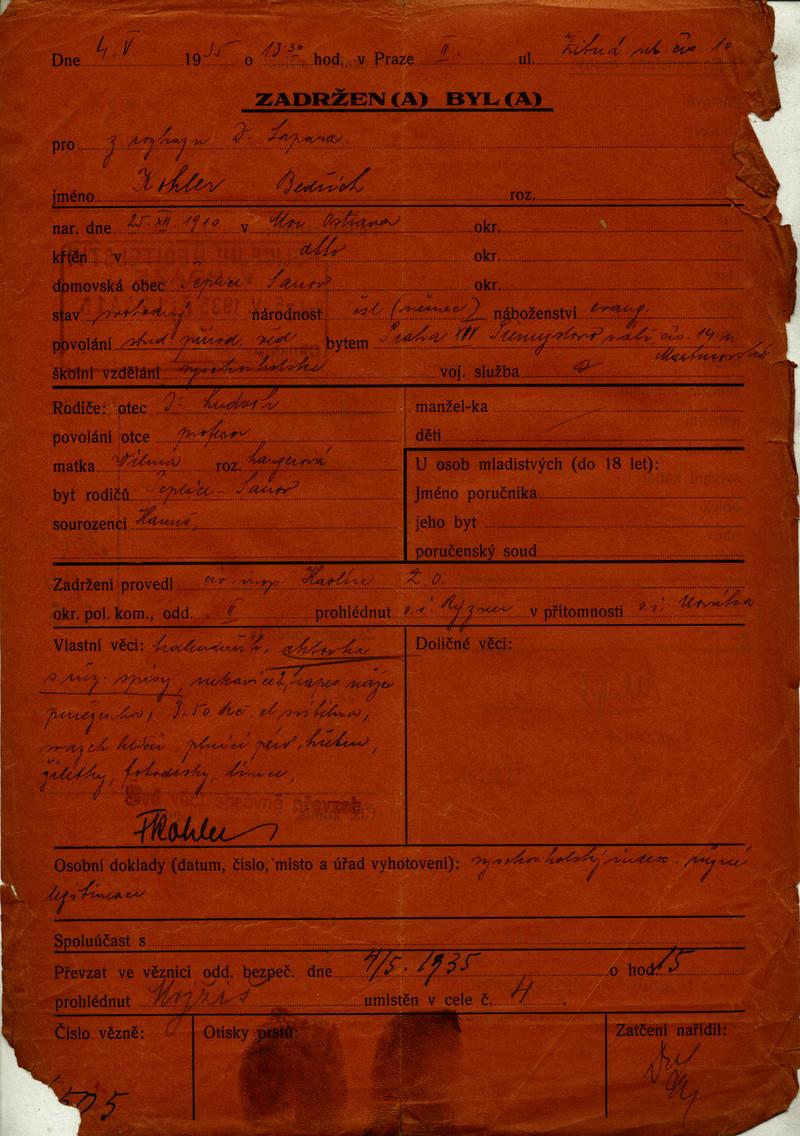 Dne 4. V. 1935 o 13 30 hod. v Praze II. ul. Žitná ul. čís. 10
ZADRŽEN(A) BYL(A)
pro z rozkazu Dr.
jméno Kohler Bedřich roz.
nar. dne 25. XII. 1910 v Mor. Ostrava okr.
křtěn v dtto okr.
domovská obec Teplice-Šanov okr.
stav svobodný národnost čsl (němec) náboženství evang.
povolání stud. přírod. věd bytem Praha XVI čís. 14 u
školní vzdělání vysokoškolské voj. služba 0
Rodiče: otec Dr. Ludvík manžel-ka
povolání otce profesor děti
matka Vilma roz. Langerová U osob mladistvých (do 18 let):
byt rodičů Teplice-Šanov Jméno poručníka
sourozenci Hanuš, jeho byt
poručenský soud
Zadržení provedl civ. insp. Z. O.
okr. pol. kom., odd. II prohlédnut v přítomnosti
Vlastní věci: aktovka Doličné věci:
s růz. spisy, rukavice,
peněženka, 3.50 Kč. el svítilna,
svazek klíčů, plnící péro, hřeben,
žiletky, fotodesky,
Své věci správně převzal
FKohler
Osobní doklady (datum, číslo, místo a úřad vyhotovení): vysokoškolský index. různé
legitimace
Spoluúčast s
Převzat ve věznici odd. bezpeč. dne 4/5. 1935 o hod. 15
prohlédnut Mojžíš umístěn v cele č. 4.
Číslo vězně: Otisky prstů: Zatčení nařídil:
505